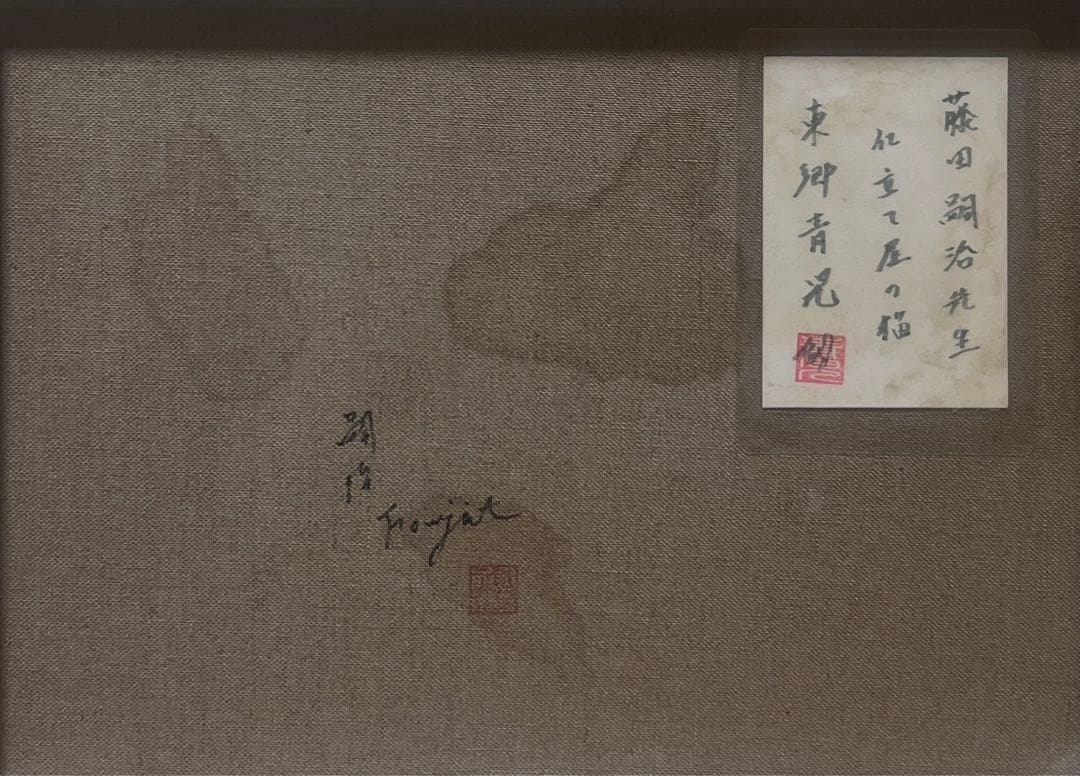 藤田嗣治先生
仕立て屋の猫
東郷青児
嗣治
Foujita